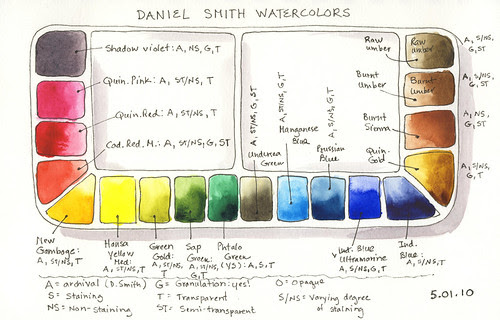 DANIEL SMITH WATERCOLORS
Shadow violet: A, NS, G, T
Quin. Pink: A, ST/NS, T
Quin. Red: A, ST/NS, T
Cad. Red. M.: A, ST/NS, G, ST
Raw
umber
Raw
umber
A, S/NS,
G, ST
Burnt
Umber
Burnt
Umber
A, S/NS,
G, ST
Burnt
Sienna
A, NS,
G, ST
Quin.
Gold
A, S/NS,
G, T
A, ST/NS, G, ST
Undersea
Green
A, ST/NS, G, T
Manganese
Blue
A, S/NS, G, T
Prussian
Blue
New
Gamboge:
A, ST/NS, T
Hansa
Yellow
Med:
A, ST/NS, T
Green
Gold:
A, ST/NS,
T
Sap
Green:
A, ST/NS,
G, T
Phtalo
Green
(YS): A, S, T
Ult. Blue
Ultramarine
A, S/NS, G, T
Ind.
Blue:
A, S/NS, T
A = archival (D. Smith) G = Granulation: yes! O = Opaque
S = Staining T = Transparent S/NS = Varying degree
NS = Non-staining ST = Semi-transparent of staining
5.01.10